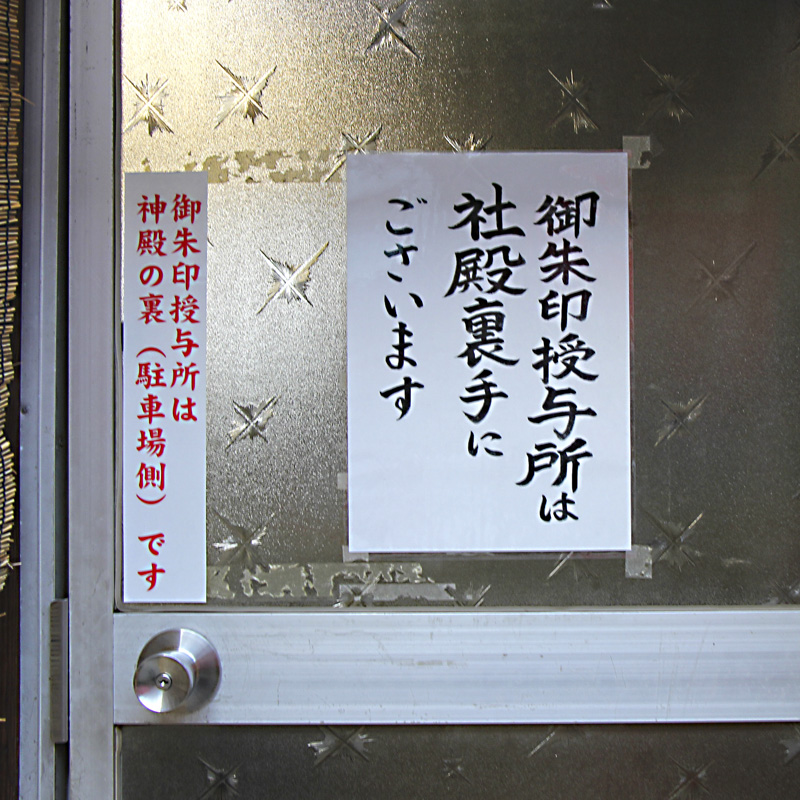 御朱印授与所は
社殿裏手に
ございます
御朱印授与所は
神殿の裏（駐車場側）です